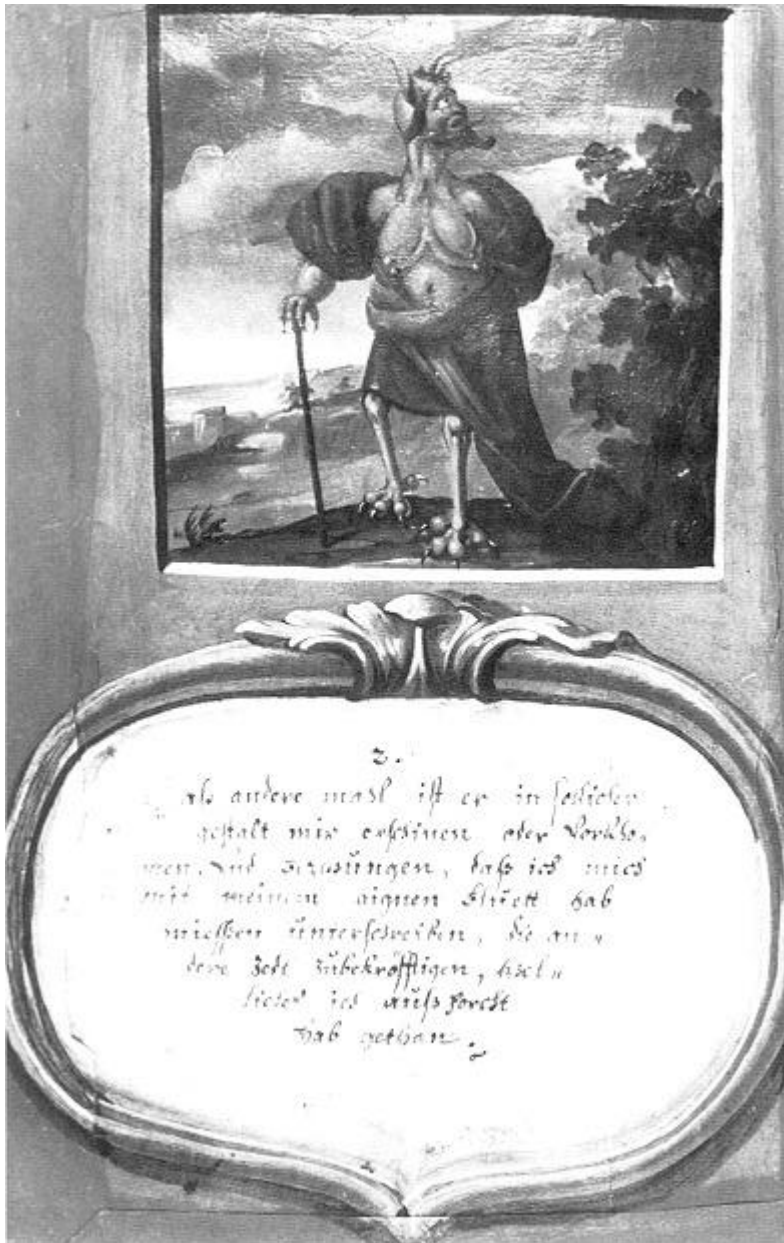 2.
als andere mahl ist er in
gestalt mir erschinen oder Vorkho„
men, Vnd gezwungen, daß ich mich
mit meinem aignen bluett hab
miessen ünterschreiben, die an„
dere Zedl zübekröfftigen, wel„
liches ich auß forcht
hab gethan